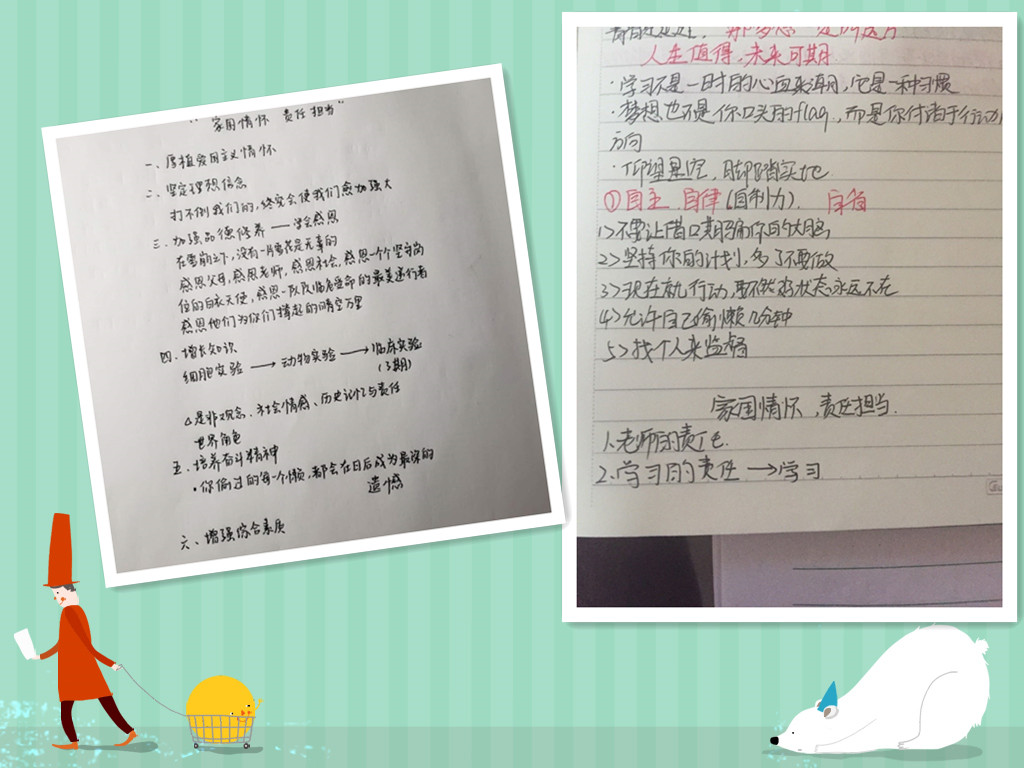 “家国情怀 责任担当”
一、厚植爱国主义情怀
二、坚定理想信念
打不倒我们的,终究会使我们愈加强大
三、加强品德修养——学会感恩
在雪崩之下,没有一片雪花是无辜的
感恩父母,感恩老师,感恩社会,感恩一个个坚守岗
位的白衣天使,感恩一队队临危受命的最美逆行者
感恩他们为你们撑起的晴空万里
四、增长知识
细胞实验 → 动物实验 → 临床实验
(3期)
△是非观念、社会情感、历史记忆与责任
世界角色
五、培养奋斗精神
•你偷过的每一个懒,都会在日后成为最深的
遗憾
六、增强综合素质
人生值得,未来可期
·学习不是一时的心血来潮,它是一种习惯
·梦想也不是你口头的flag,而是你付诸于行动
方向
·仰望星空,脚踏实地
①自主 自律(自制力). 自省
1>不要让借口欺骗你的大脑
2>坚持你的计划,多了不要做
3>现在就行动,要不然状态永远不在
4>允许自己偷懒几分钟
5>找个人来监督
家国情怀,责任担当.
1.老师的责任.
2.学习的责任→学习